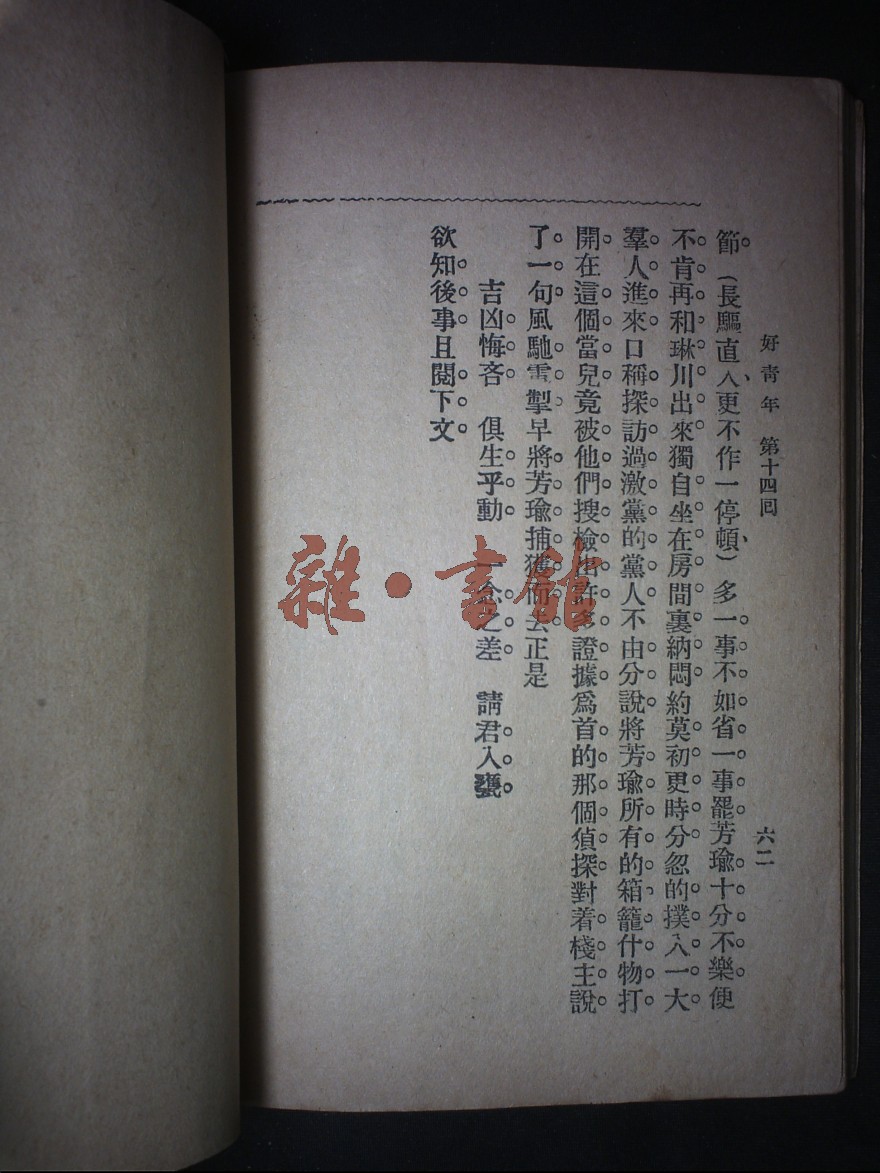 好青年 第十四囘 六二
節。(長驅直入、更不作一停頓、)多一事不如省一事罷。芳瑜十分不樂。便
不肯再和琳川出來。獨自坐在房間裏納悶。約莫初更時分。忽的撲入一大
羣人進來。口稱探訪過激黨的黨人。不由分說。將芳瑜所有的箱籠什物打
開。在這個當兒。竟被他們搜檢出許多證據。爲首的那個偵探。對着棧主說
了一句。風馳電掣。早將芳瑜捕獲而去。正是
吉凶悔吝。 俱生乎動。 一念之差。 請君入甕。
欲知後事。且閱下文。
雜·書館